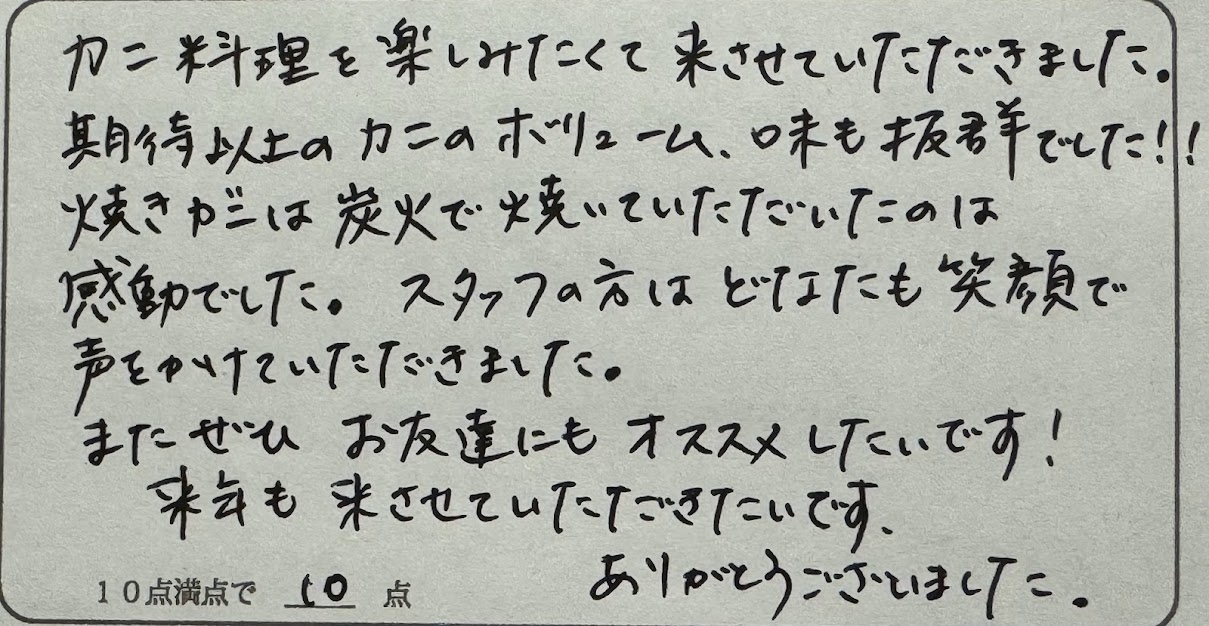 カニ料理を楽しみたくて来させていただきました。
期待以上のカニのボリューム、味も抜群でした!!
焼きガニは炭火で焼いていただいたのは
感動でした。スタッフの方はどなたも笑顔で
声をかけていただきました。
またぜひお友達にもオススメしたいです!
来年も来させていただきたいです、
ありがとうございました。
10点満点で 10 点